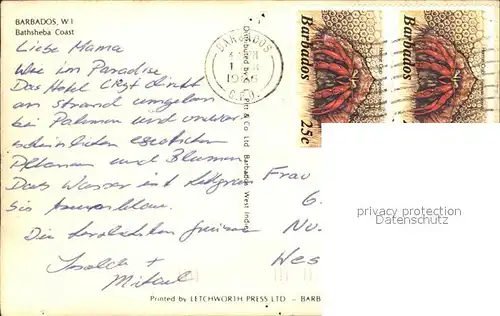 BARBADOS, W I
Bathsheba Coast
Liebe Mama
Wie im Paradise
Das Hotel liegt direkt
am Strand umgeben
bei Palmen und unwar-
scheinlichen exotischen
Pflanzen und Blumen
Das Wasser ist hellgrün
bis azurblau.
Die herzlichsten Grüsse
Isolde +
Michael
Printed by LETCHWORTH PRESS LTD – BARB
Distributed by C. L. Pitt & Co. Ltd. Barbados, West Indies
BARBADOS
G.P.O.
Barbados
25c
Barbados
Frau
6.
Nü.
Wes
privacy protection
Datenschutz